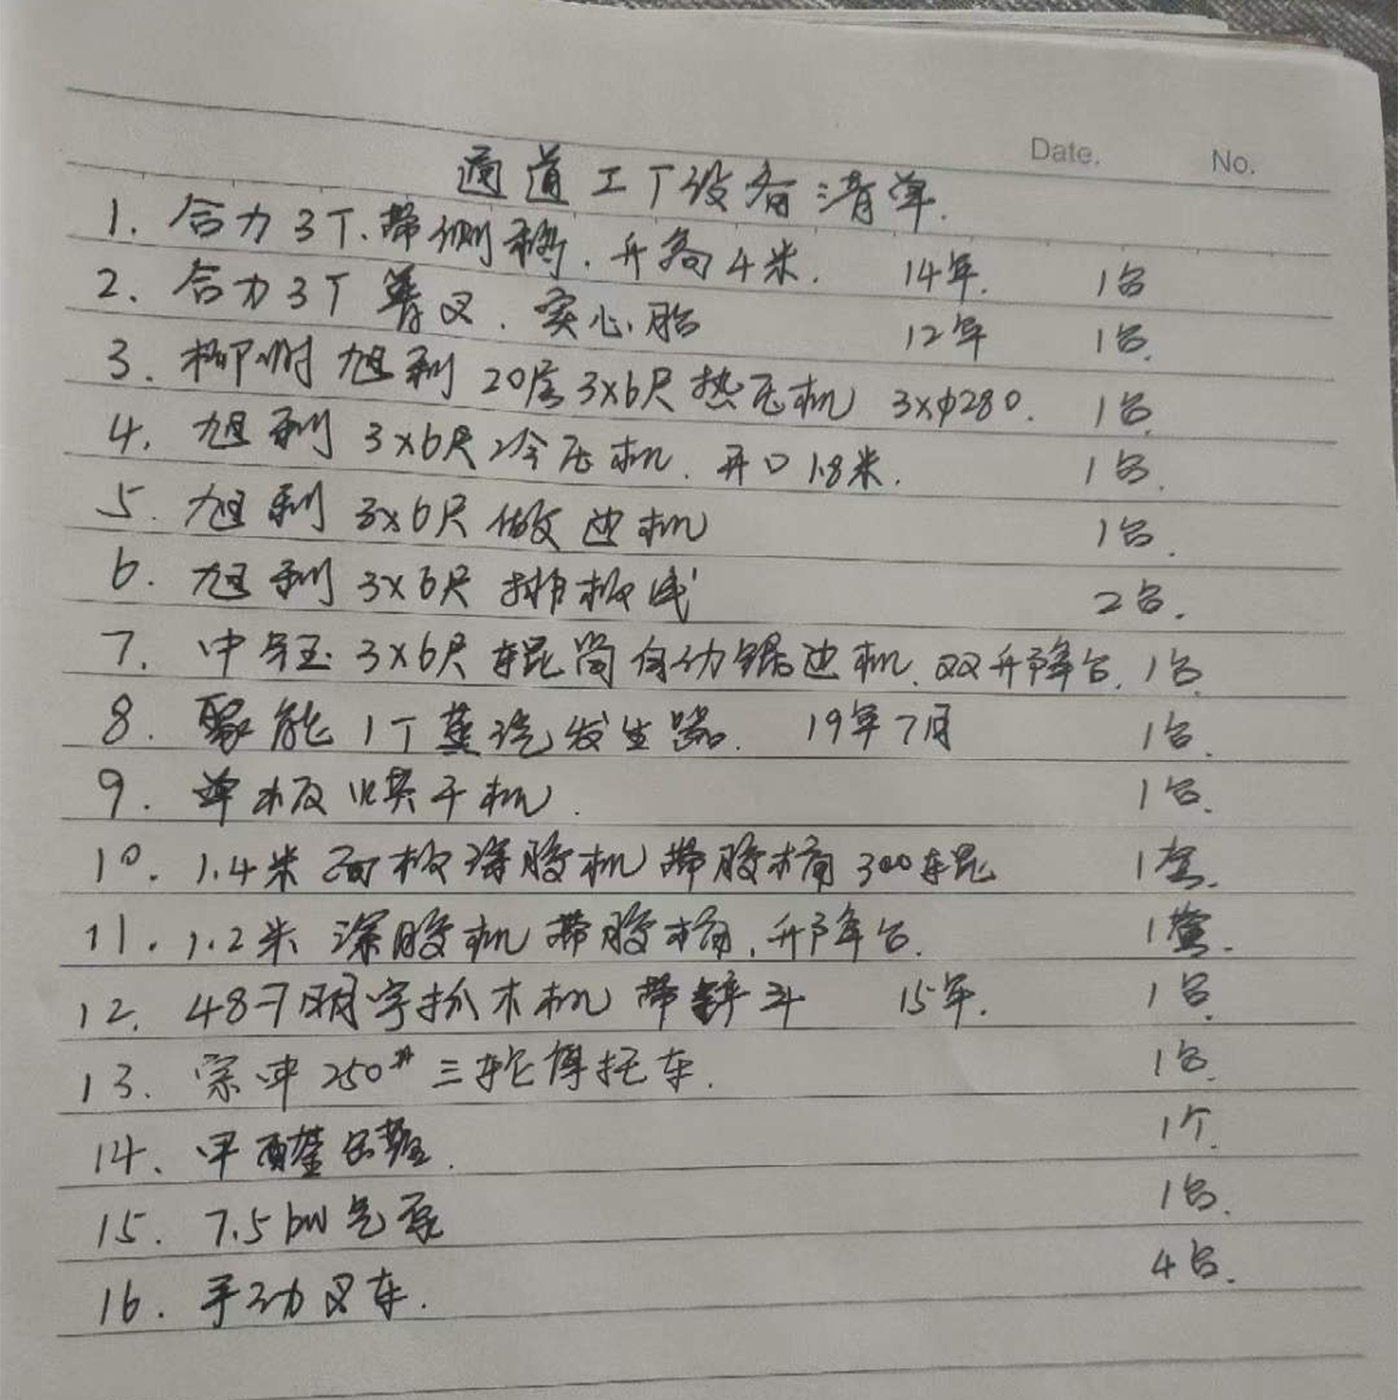 Date. No.
通道工厂设备清单.
1. 合力3T、带侧移.升高4米. 14年. 1台
2. 合力3T 普叉.实心胎 12年 1台.
3. 柳州旭利 20层3x6尺热压机 3xφ280. 1台.
4. 旭利 3x6尺冷压机.开口1.8米. 1台.
5. 旭利 3x6尺 修边机 1台.
6. 旭利 3x6尺 排板线 2台.
7. 中钰 3x6尺 辊筒自动锯边机.双升降台. 1台.
8. 聚能 1T 蒸汽发生器. 19年7月 1台.
9. 单板烘干机. 1台.
10. 1.4米 面板涂胶机 带胶桶 300辊 1套.
11. 1.2米 涂胶机 带胶桶,升降台. 1套.
12. 487 明宇抓木机 带铲斗 15年. 1台.
13. 宗申250# 三轮摩托车. 1台.
14. 甲醛罐. 1个.
15. 7.5kW气泵 1台.
16. 手动叉车. 4台.